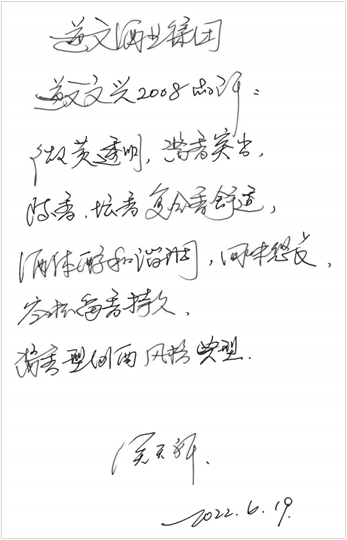 酒业集团
2008品评：
微黄透明，酱香突出，
陈香、坛香复合香舒适，
酒体醇和谐调，回味悠长，
空杯留香持久，
酱香型白酒风格典型.
2022.6.19.